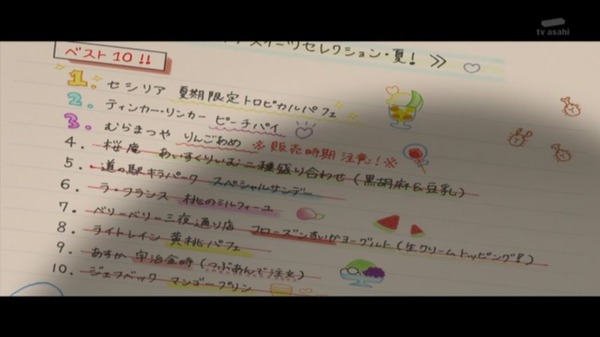 tv asahi
スイーツセレクション・夏! >>
ベスト10!!
1. セシリア 夏期限定トロピカルパフェ
2. ティンカー・リンカー ピーチパイ
3. むらまつや りんごあめ ※販売時期注意!※
4. 桜庵 あいすくりいむ二種盛り合わせ(黒胡麻&豆乳)
5. 道の駅キラパーク スペシャルサンデー
6. ラ・フランス 桃のミルフィーユ
7. ベリーベリー三夜通り店 フローズンすいかヨーグルト(生クリームトッピング!)
8. ライトレイン 黄桃パフェ
9. あすか 宇治金時(つぶあんで注文)
10. ジェフベック マンゴープリン